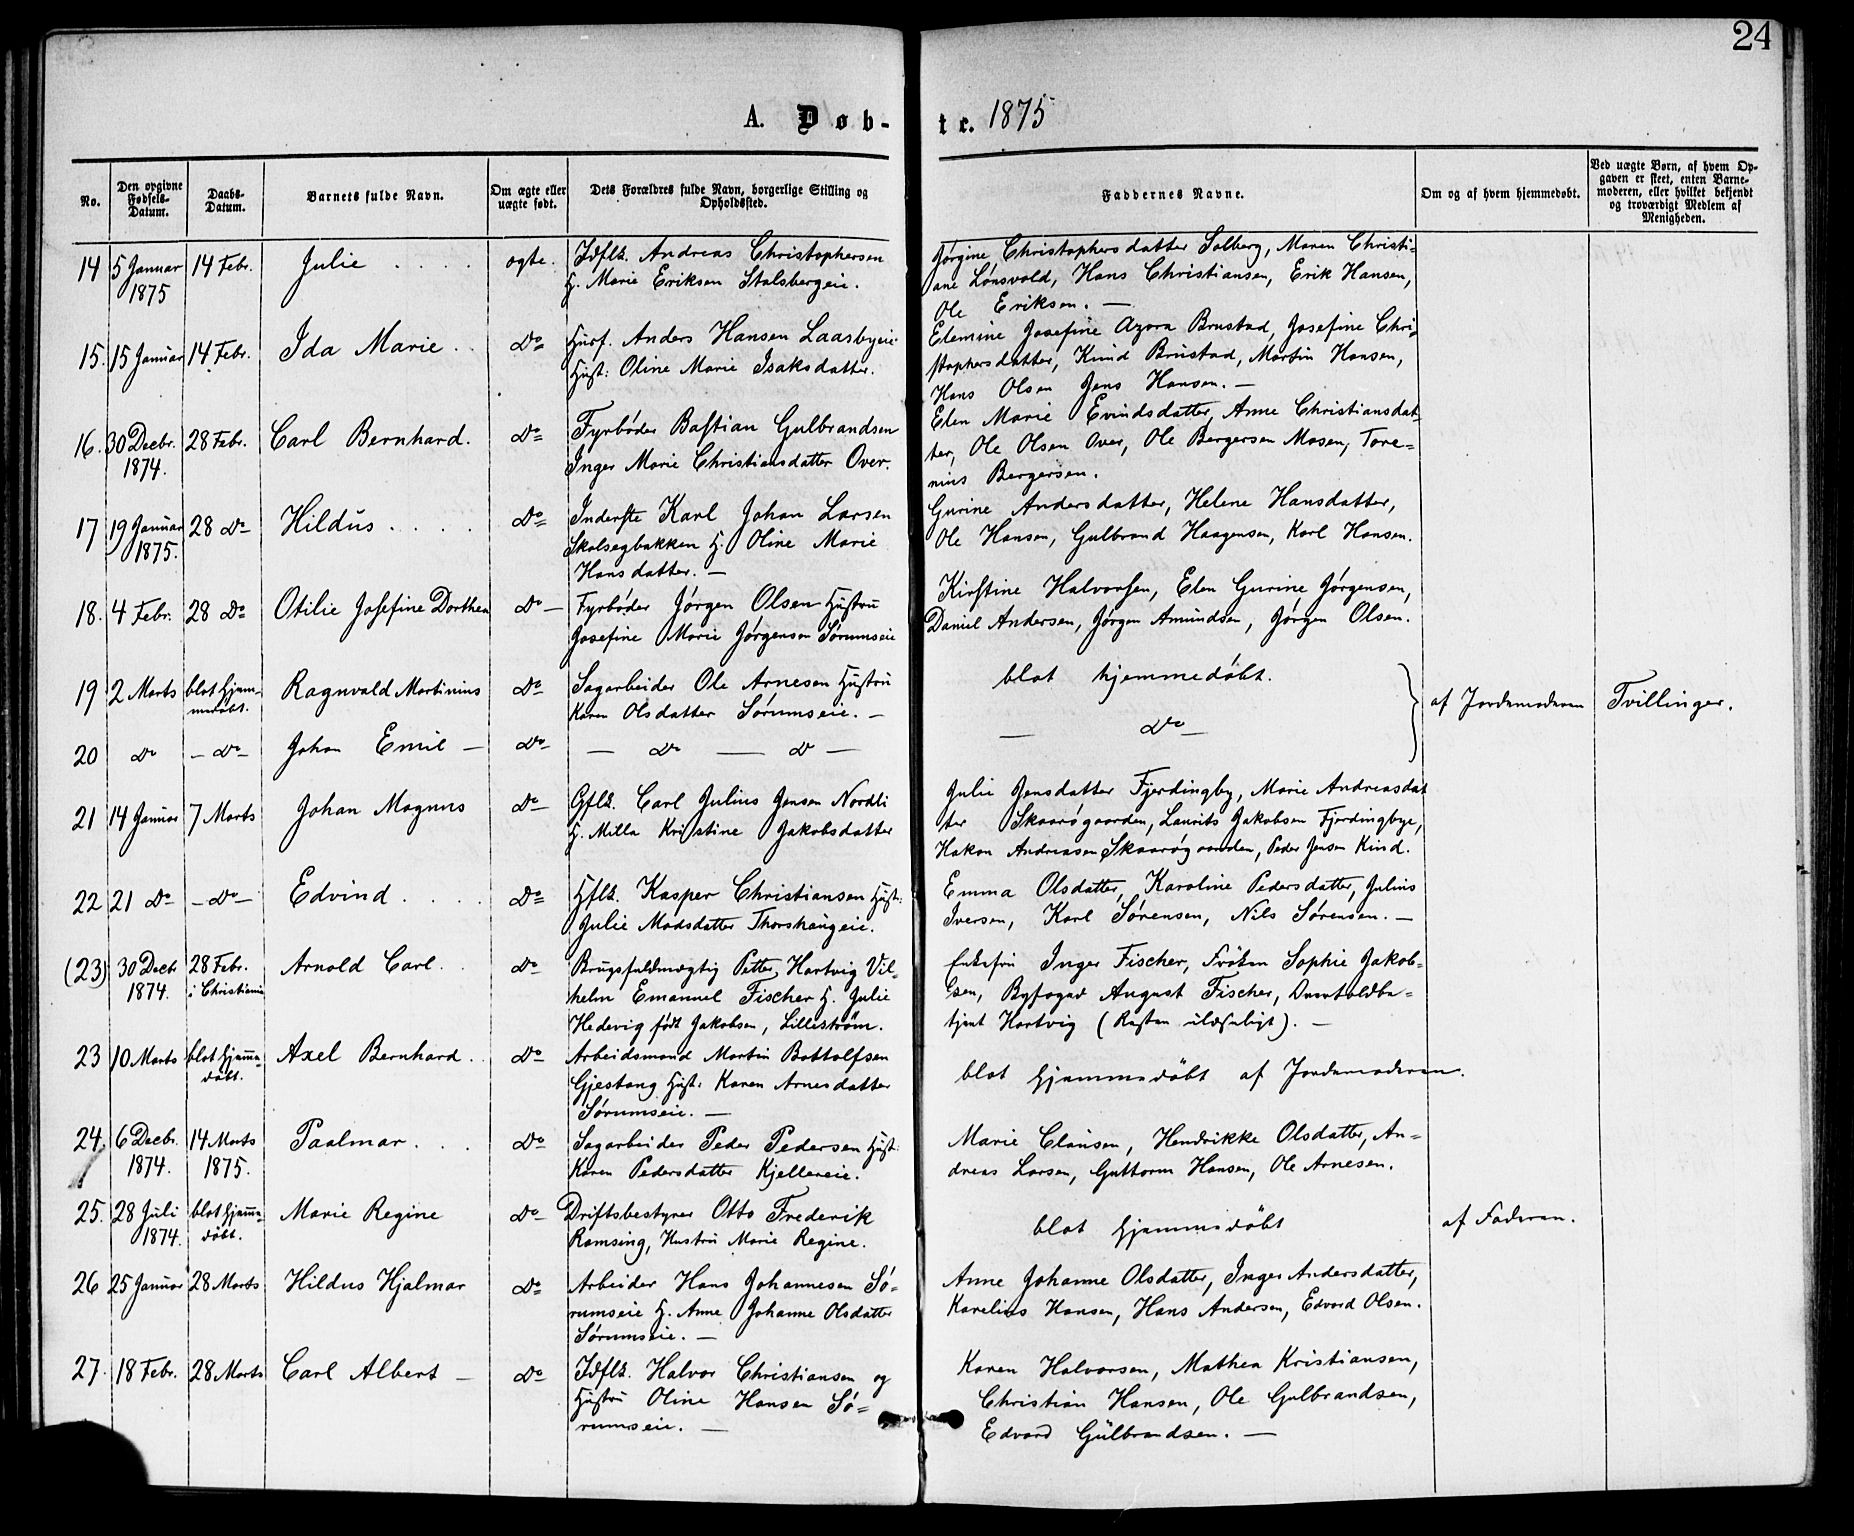 24
A. Døb-
te. 1875
No.
Den opgivne Fødsels-Datum.
Daabs-Datum.
Barnets fulde Navn.
Om ægte eller uægte født.
Dets Forældres fulde Navn, borgerlige Stilling og Opholdssted.
Faddernes Navne.
Om og af hvem hjemmedøbt.
Ved uægte Børn, af hvem Op-
gaven er skeet, enten Barne-
moderen, eller hvilket bekjendt
og troværdigt Medlem af
Menigheden.
14 5 Januar 1875 14 Febr. Julie . . . . ægte. Idflk. Andreas Christophersen
H. Marie Eriksen Stalsbergeie.
Jørgine Christophersdatter Solberg, Maren Christi-
ane Lønsvold, Hans Christiansen, Erik Hansen,
Ole Eriksen. —
15. 15 Januar 14 Febr. Ida Marie . . Do Husf. Anders Hansen Laasbyeie
Hust: Oline Marie Isaksdatter.
Elemine Josefine Azora Brustad, Josefine Chri-
stophersdatter, Knud Brustad, Martin Hansen,
Hans Olsen Jens Hansen. —
16. 30 Decbr. 1874. 28 Febr. Carl Bernhard. Do Fyrbøder Bastian Gulbrandsen
Inger Marie Christiansdatter Over.
Elen Marie Evindsdatter, Anne Christiansdat-
ter, Ole Olsen Over, Ole Bergersen Mosen, Tore-
nius Bergersen.
17 19 Januar 1875. 28 Do Hildus . . . . Do Inderste Karl Johan Larsen
Skolsegbakken H. Oline Marie
Hansdatter. —
Gurine Andersdatter, Helene Hansdatter,
Ole Hansen, Gulbrand Haagensen, Karl Hansen.
18. 4 Febr. 28 Do Otilie Josefine Dorthea Do — Fyrbøder Jørgen Olsen Hustru
Josefine Marie Jørgensen Sørumseie
Kirstine Halvorsen, Elen Gurine Jørgensen,
Daniel Andersen, Jørgen Amundsen, Jørgen Olsen.
19 2 Marts blot hjem-
medøbt. Ragnvald Martinius Do Sagarbeider Ole Arnesen Hustru
Karen Olsdatter Sørumseie. —
blot hjemmedøbt.
af Jordemoderen Tvillinger.
20 Do — Do — Johan Emil — Do — Do — D — — Do —
21 14 Januar 7 Marts Johan Magnus Do Gflk. Carl Julius Jensen Nordli
H. Milla Kristine Jakobsdatter
Julie Jensdatter Fjerdingby, Marie Andreasdat
ter Skaarøgaarden, Laurits Jakobsen Fjerdingbye,
Hakon Andreasen Skaarøgaarden, Peder Jensen Kind.
22 21 Do — Do — Edvind . . . . Do Hflk. Kasper Christiansen Hust:
Julie Madsdatter Thorshaugeie.
Emma Olsdatter, Karoline Pedersdatter, Julius
Iversen, Karl Sørensen, Nils Sørensen. —
(23) 30 Decbr 1874. 28 Febr. i Christiania Arnold Carl . . Do Brugsfuldmægtig Petter Hartvig Vil-
helm Emanuel Fischer H. Julie
Hedevig født Jakobsen, Lillestrøm.
Enkefru Inger Fischer, Frøken Sophie Jakob-
sen, Byfoged August Fischer, Overtoldbe-
tjent Hartvig (Resten ulæseligt). —
23 10 Marts blot hjemme-
døbt. Axel Bernhard . . Do Arbeidsmand Martin Bottolfsen
Gjestang Hust: Karen Arnesdatter
Sørumseie. —
blot hjemmedøbt af Jordemoderen.
24. 6 Decbr. 1874. 14 Marts 1875. Paalmar . . . Do Sagarbeider Peder Pedersen Hust:
Karen Pedersdatter Kjellereie.
Marie Clausen, Hendrikke Olsdatter, An-
dreas Larsen, Guttorm Hansen, Ole Arnesen.
25. 28 Juli 1874. blot hjemme-
døbt. Marie Regine Do Driftsbestyrer Otto Frederik
Ramsing, Hustru Marie Regine.
blot hjemmedøbt
af Faderen.
26 25 Januar 28 Marts Hildus Hjalmar Do Arbeider Hans Johannesen Sø-
rumseie H. Anne Johanne Olsdatter
Sørumseie. —
Anne Johanne Olsdatter, Inger Andersdatter,
Karelius Hansen, Hans Andersen, Edvard Olsen.
27. 18 Febr. 28 Marts Carl Albert — Do Idflk. Halvor Christiansen og
Hustru Oline Hansen Sø-
rumseie. —
Karen Halvorsen, Mathea Kristiansen,
Christian Hansen, Ole Gulbrandsen,
Edvard Gulbrandsen. —